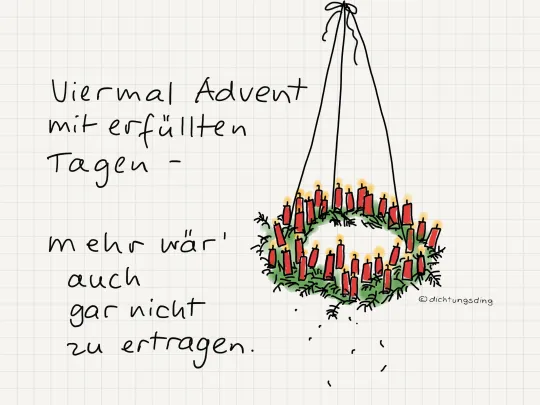 Viermal Advent
mit erfüllten
Tagen -
mehr wär'
auch
gar nicht
zu ertragen.
©dichtungsding